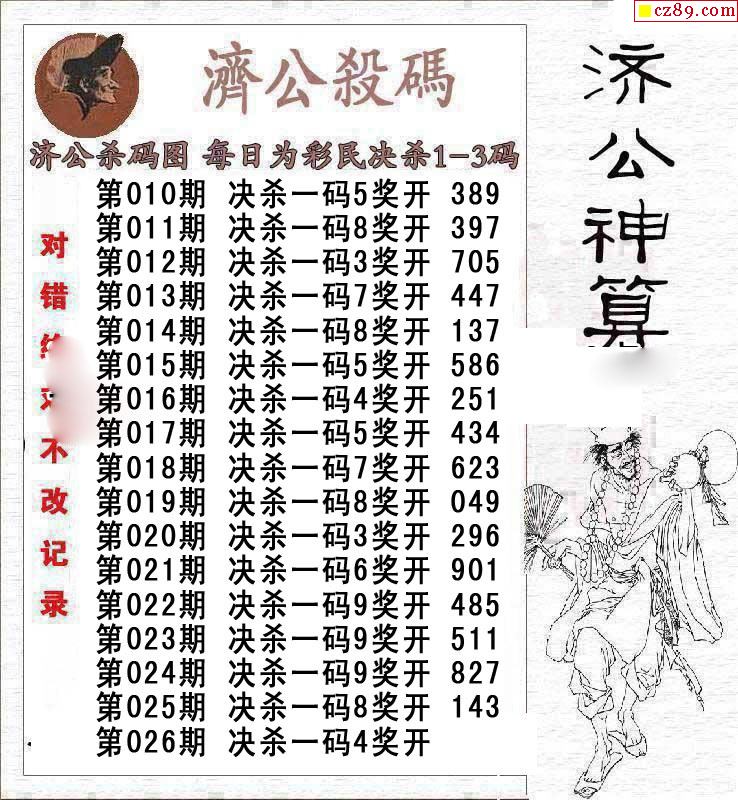 cz89.com
濟公殺碼
济公杀码图 每日为彩民决杀1-3码
第010期 决杀一码5奖开 389
第011期 决杀一码8奖开 397
第012期 决杀一码3奖开 705
第013期 决杀一码7奖开 447
第014期 决杀一码8奖开 137
第015期 决杀一码5奖开 586
第016期 决杀一码4奖开 251
第017期 决杀一码5奖开 434
第018期 决杀一码7奖开 623
第019期 决杀一码8奖开 049
第020期 决杀一码3奖开 296
第021期 决杀一码6奖开 901
第022期 决杀一码9奖开 485
第023期 决杀一码9奖开 511
第024期 决杀一码9奖开 827
第025期 决杀一码8奖开 143
第026期 决杀一码4奖开
对错不改记录
济公神算